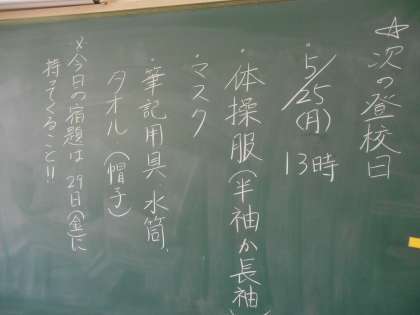 ☆次の登校日
・5/25(月) 13時
・体操服(半袖か長袖)
・マスク
・筆記用具、水筒、
タオル(帽子)
※今日の宿題は 29日(金)に
持ってくること!!